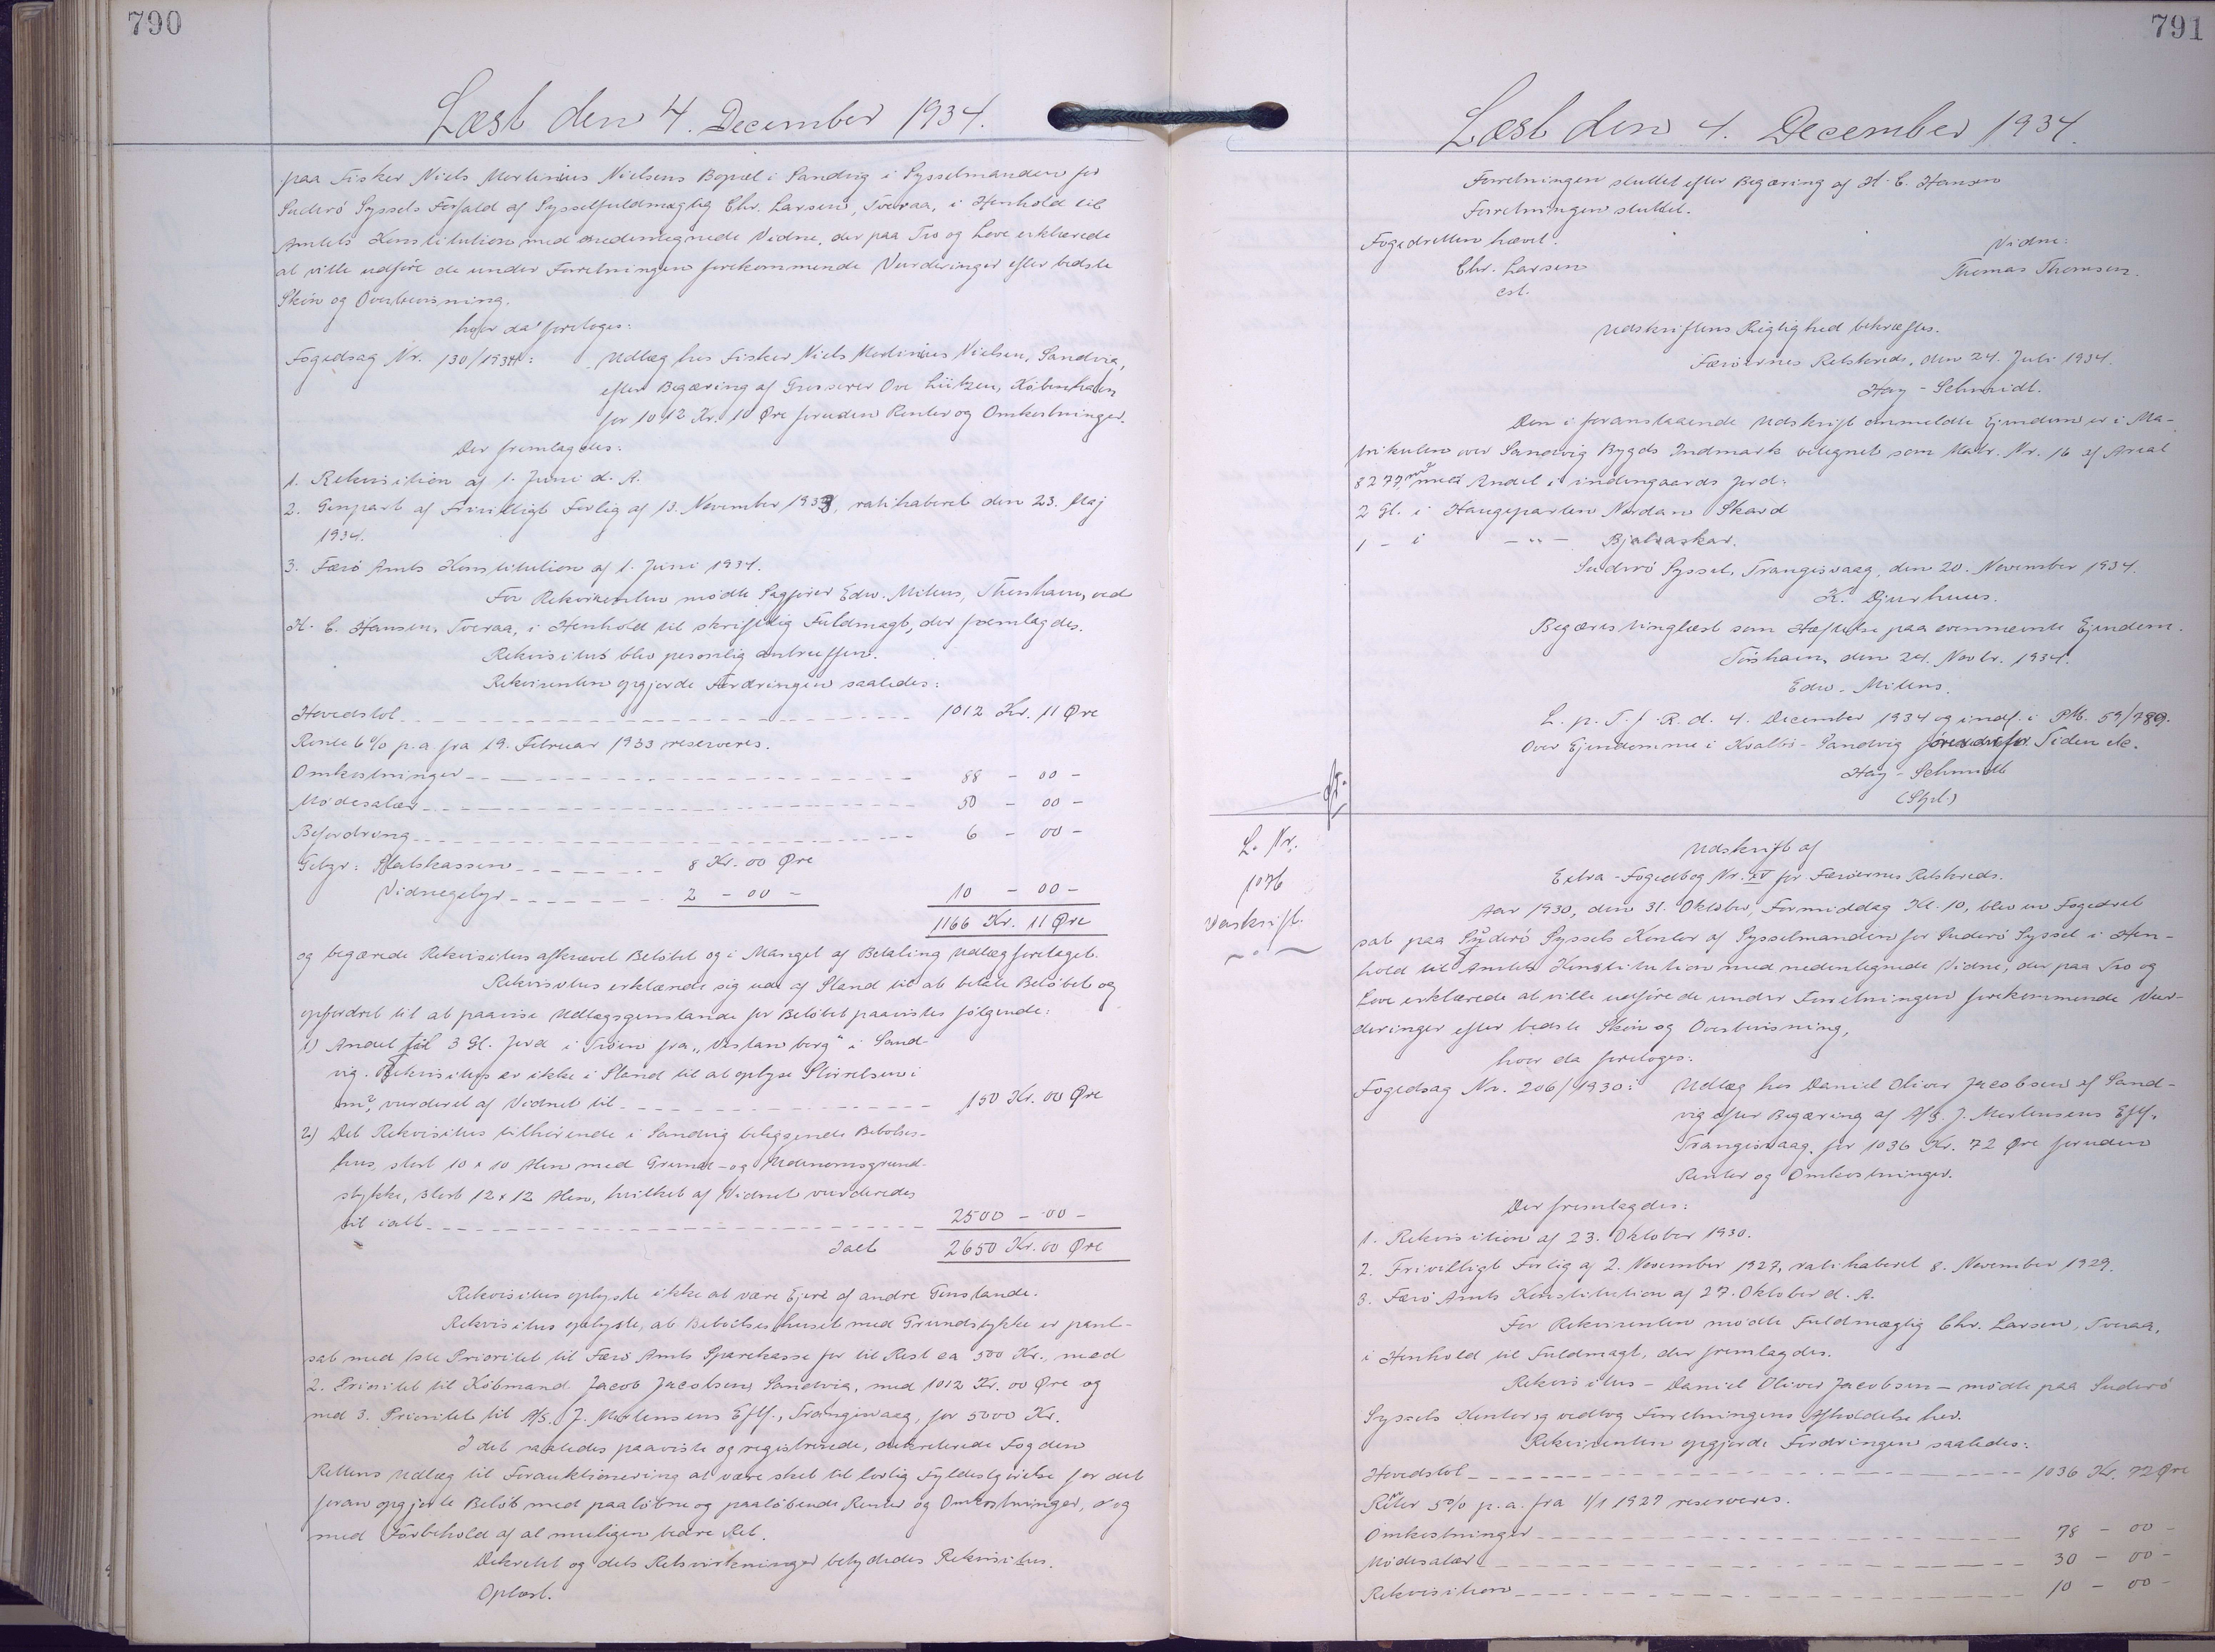 790
Læst den 4. December 1934.
paa Fisker Niels Mortinius Nielsens Bopæl i Sandvig i Sysselmanden for
Suderø Syssels Forfald af Sysselfuldmægtig Chr. Larsen, Tveraa, i Henhold til
Amtets Konstitution med medundertegnede Vidne, der paa Tro og Love erklærede
at ville udføre de under Forretningen forekommende Vurderinger efter bedste
Skøn og Overbevisning.
hvor da foretoges:
Fogedsag Nr. 130/1934: Udlæg hos Fisker Niels Mortinius Nielsen, Sandvig,
efter Begæring af Grosserer Ove Lützen, København
for 1012 Kr. 10 Øre foruden Renter og Omkostninger.
Der fremlagdes:
1. Rekvisition af 1. Juni d. A.
2. Genpart af Frivilligt Forlig af 13. November 1933, ratihaberet den 23. Maj
1934.
3. Færø Amts Konstitution af 1. Juni 1934.
For Rekvirenten mødte Sagfører Edw. Mitens, Thorshavn, ved
H. C. Hansen, Tveraa, i Henhold til skriftlig Fuldmagt, der fremlagdes.
Rekvisitus blev personlig antruffen.
Rekvirenten opgjorde Fordringen saaledes:
Hovedstol 1012 Kr. 11 Øre
Rente 6% p.a. fra 19. Februar 1933 reserveres.
Omkostninger 88 - 00 -
Mødesalær 50 - 00 -
Befordring 6 - 00 -
Gebyr: Statskassen 8 Kr. 00 Øre
Vidnegebyr 2 - 00 - 10 - 00 -
1166 Kr. 11 Øre
og begærede Rekvisitus afkrævet Beløbet og i Mangel af Betaling Udlæg foretaget.
Rekvisitus erklærede sig ude af Stand til at betale Beløbet og
opfordret til at paavise Udlægsgenstande for Beløbet paavistes følgende:
1) Andel til 3 Gl. Jord i Trøen fra "Vestan berg" i Sand-
vig. Rekvisitus er ikke i Stand til at oplyse Størrelsen i
m², vurderet af Vidnet til 150 Kr. 00 Øre
2) Det Rekvisitus tilhørende i Sandvig beliggende Beboelses-
hus, stort 10 x 10 Alen med Grund- og Udenomsgrund-
stykke, stort 12 x 12 Alen, hvilket af Vidnet vurderedes
til ialt 2500 - 00 -
Ialt 2650 Kr. 00 Øre
Rekvisitus oplyste ikke at være Ejere af andre Genstande.
Rekvisitus oplyste, at Beboelseshuset med Grundstykke er pant-
sat med 1ste Prioritet til Færø Amts Sparekasse for til Rest ca 500 Kr., med
2. Prioritet til Købmand Jacob Jacobsen, Sandvig, med 1012 Kr. 00 Øre og
med 3. Prioritet til A/S. J. Mortensens Eftf., Trangisvaag, for 5000 Kr.
I det saaledes paaviste og registrerede, dekreterede Fogden
Rettens Udlæg til Forauktionering at være sket til lovlig Fyldestgørelse for det
foran opgjorte Beløb med paaløbne og paaløbende Renter og Omkostninger, og
med Forbehold af al muligen bedre Ret.
Dekretet og dets Retsvirkninger betydedes Rekvisitus.
Oplæst.
791
Læst den 4. December 1934.
Forretningen sluttet efter Begæring af H. C. Hansen
Forretningen sluttet.
Fogedretten hævet.
Vidne:
Chr. Larsen
Thomas Thomsen.
cst.
Udskriftens Rigtighed bekræftes.
Færøernes Retskreds, den 24. Juli 1934.
Hay-Schmidt.
Den i foranstaaende Udskrift ommeldte Ejendom er i Ma-
trikulen over Sandvig Bygds Indmark betegnet som Matr. Nr. 16 af Areal
8277 m² med Andel i indengaards Jord:
2 Gl. i Haugeparten Nordan Skard
1 - i - " - Bjalvaskar.
Suderø Syssel, Trangisvaag, den 20. November 1934.
K. Djurhuus.
Begæres tinglæst som Hæftelse paa ovennævnte Ejendom.
Tórshavn, den 24. Novbr. 1934.
Edw. Mitens.
L. p. T. f. R. d. 4. December 1934 og indf. i PM. 59/789.
Over Ejendomme i Kvalbø-Sandvig føres derfor Tiden etc.
Hay-Schmidt
(Sgl.)
L. Nr.
1076
Udskrift af
Extra-Fogedbog Nr. XV for Færøernes Retskreds.
Aar 1930, den 31. Oktober, Formiddag Kl. 10, blev en Fogedret
sat paa Suderø Syssels Kontor af Sysselmanden for Suderø Syssel i Hen-
hold til Amtets Konstitution med nedentegnede Vidne, der paa Tro og
Love erklærede at ville udføre de under Forretningen forekommende Vur-
deringer efter bedste Skøn og Overbevisning,
hvor da foretoges:
Fogedsag Nr. 206/1930: Udlæg hos Daniel Oliver Jacobsen af Sand-
vig efter Begæring af A/S. J. Mortensens Eftf.
Trangisvaag, for 1036 Kr. 72 Øre foruden
Renter og Omkostninger.
Der fremlagdes:
1. Rekvisition af 23. Oktober 1930.
2. Frivilligt Forlig af 2. November 1927, ratihaberet 8. November 1929.
3. Færø Amts Konstitution af 27. Oktober d. A.
For Rekvirenten mødte Fuldmægtig Chr. Larsen, Tveraa,
i Henhold til Fuldmagt, der fremlagdes.
Rekvisitus - Daniel Oliver Jacobsen - mødte paa Suderø
Syssels Kontor og vedtog Forretningens Afholdelse her.
Rekvirenten opgjorde Fordringen saaledes:
Hovedstol 1036 Kr. 72 Øre
Renter 5% p.a. fra 1/1 1927 reserveres.
Omkostninger 78 - 00 -
Mødesalær 30 - 00 -
Rekvisition 10 - 00 -